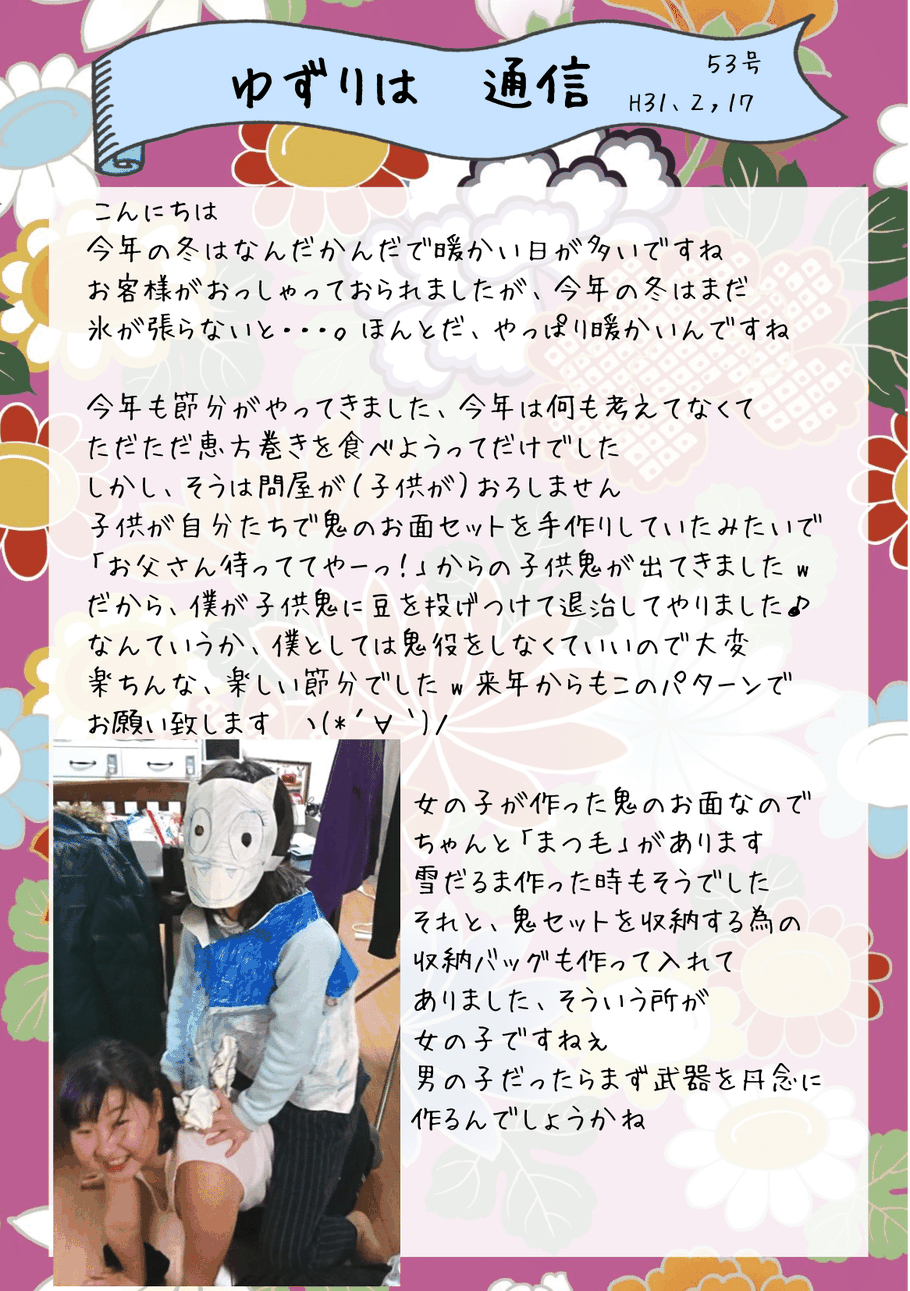 ゆずりは 通信
53号
H31、2,17
こんにちは
今年の冬はなんだかんだで暖かい日が多いですね
お客様がおっしゃっておられましたが、今年の冬はまだ
氷が張らないと・・・。ほんとだ、やっぱり暖かいんですね
今年も節分がやってきました、今年は何も考えてなくて
ただただ恵方巻きを食べようってだけでした
しかし、そうは問屋が(子供が)おろしません
子供が自分たちで鬼のお面セットを手作りしていたみたいで
「お父さん待っててやーっ!」からの子供鬼が出てきましたw
だから、僕が子供鬼に豆を投げつけて退治してやりました♪
なんていうか、僕としては鬼役をしなくていいので大変
楽ちんな、楽しい節分でしたw来年からもこのパターンで
お願い致します ヽ(*´∀`)/
女の子が作った鬼のお面なので
ちゃんと「まつ毛」があります
雪だるま作った時もそうでした
それと、鬼セットを収納する為の
収納バッグも作って入れて
ありました、そういう所が
女の子ですねぇ
男の子だったらまず武器を丹念に
作るんでしょうかね